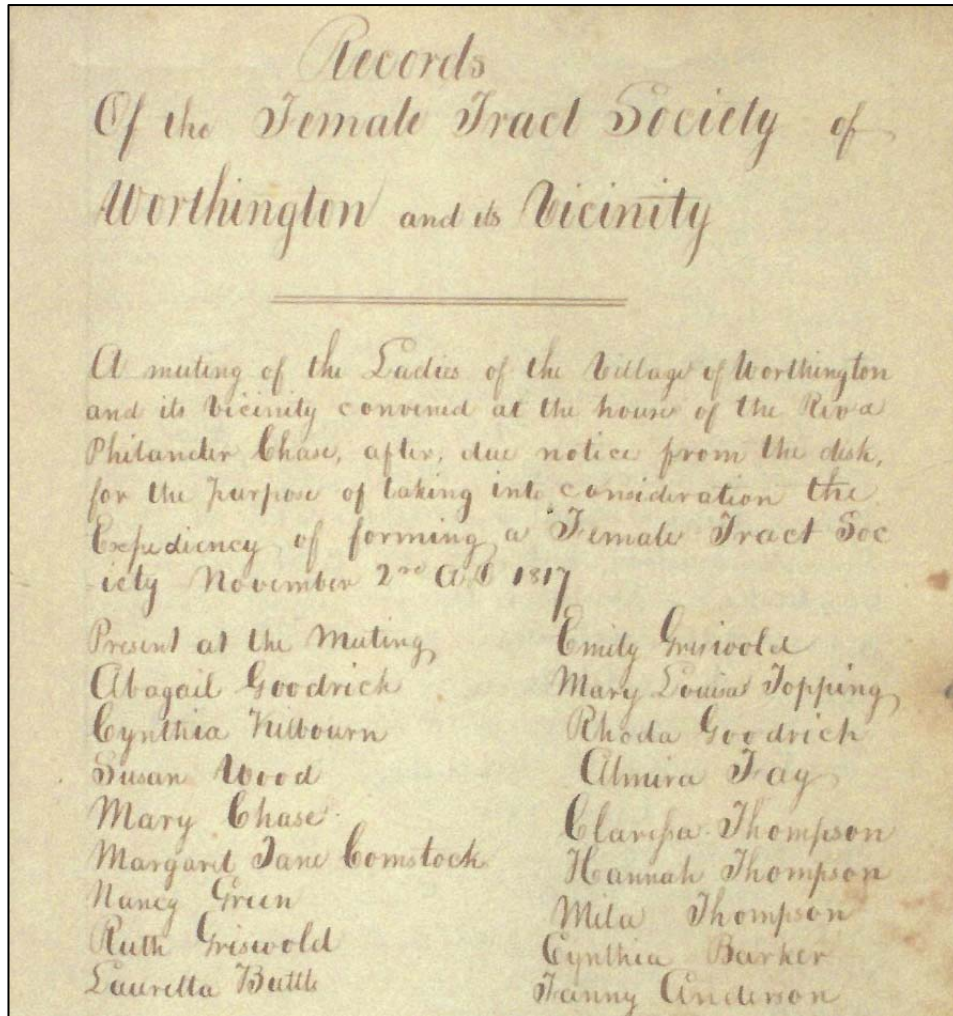 Records
Of the Female Tract Society of
Worthington and its Vicinity
A meeting of the Ladies of the Village of Worthington
and its Vicinity convened at the house of the Revd
Philander Chase, after, due notice from the desk,
for the purpose of taking into consideration the
Expediency of forming a Female Tract Soc
iety November 2nd AD 1817
Present at the Meeting
Abagail Goodrich
Cynthia Kilbourn
Susan Wood
Mary Chase
Margaret Jane Comstock
Nancy Green
Ruth Griswold
Lauretta Buttle
Emily Griswold
Mary Louisa Topping
Rhoda Goodrich
Almira Fay
Clarissa Thompson
Hannah Thompson
Mila Thompson
Cynthia Barker
Fanny Anderson